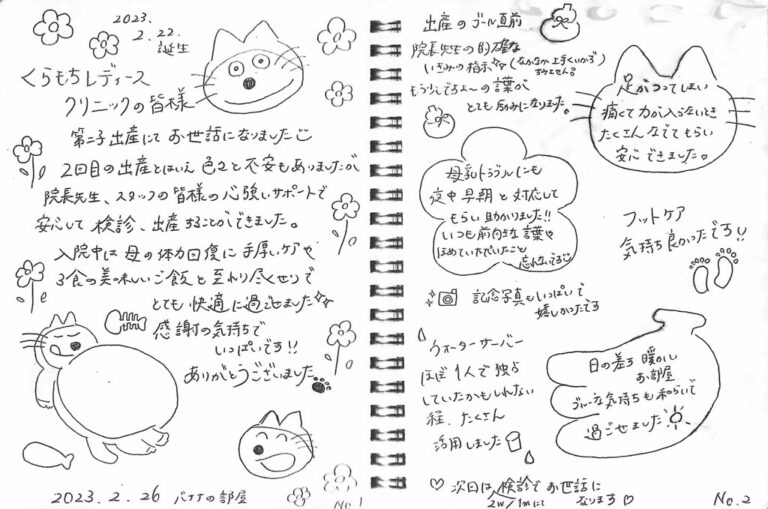 2023.
2.22.
誕生
くらもちレディース
クリニックの皆様
第二子出産にて お世話になりました
2回目の出産とはいえ 色々と不安もありましたが
院長先生、スタッフの皆様の心強いサポートで
安心して 検診、出産することができました。
入院中は 母の体力回復に 手厚いケアや
3食の美味しいご飯と 至れり尽くせりで
とても 快適に過ごせました
感謝の気持ちで
いっぱいです!!
ありがとうございました
2023.2.26 バナナの部屋
No.1
出産のゴール直前
院長先生の的確な
いきみの指示(なかなか上手くいかず
すみません)
もう少しでるよ〜の言葉が
とても励みになりました。
足がつってしまい
痛くて力が入らないとき
たくさんなでてもらい
安心できました。
母乳トラブルにも
夜中 早朝と対応して
もらい助かりました!!
いつも前向きな言葉や
ほめていただいたこと
忘れないです
フットケア
気持ち良かったです!!
記念写真もいっぱいで
嬉しかったです
ウォーターサーバー
ほぼ1人で独占
していたかもしれない
程、たくさん
活用しました
日の差す 暖かい
お部屋
ブルーな気持ちも和らいで
過ごせました
♡次回は 検診で お世話に
2w/1mにて
なります♡
No.2